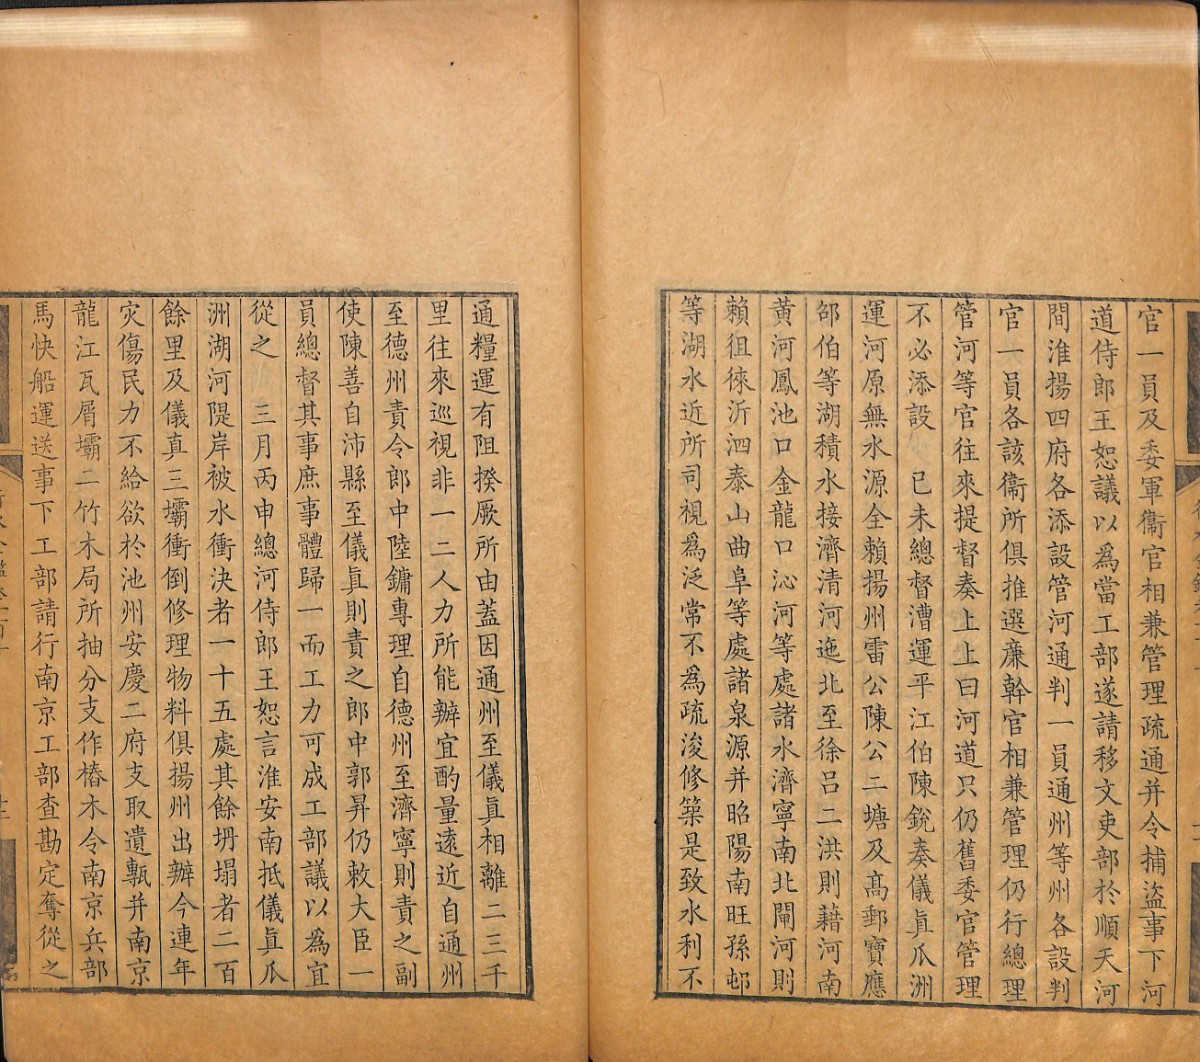 官一員及委軍衞官相兼管理疏通并令捕盜事下河
道侍郎王恕議以為當工部遂請移文吏部於順天河
間淮揚四府各添設管河通判一員通州等州各設判
官一員各該衞所俱推選廉幹官相兼管理仍行總理
管河等官往來提督奏上上曰河道只仍舊委官管理
不必添設　己未總督漕運平江伯陳銳奏儀眞瓜洲
運河原無水源全賴揚州雷公陳公二塘及高郵寶應
邵伯等湖積水接濟清河迤北至徐呂二洪則藉河南
黄河鳳池口金龍口沁河等處諸水濟寧南北閘河則
賴徂徠沂泗泰山曲阜等處諸泉源并昭陽南旺孫邨
等湖水近所司視為泛常不為疏浚修築是致水利不
通糧運有阻揆厥所由蓋因通州至儀眞相離二三千
里往來巡視非一二人力所能辦宜酌量遠近自通州
至德州責令郎中陸鏞專理自德州至濟寧則責之副
使陳善自沛縣至儀眞則責之郎中郭昇仍敕大臣一
員總督其事庶事體歸一而工力可成工部議以為宜
從之　三月丙申總河侍郎王恕言淮安南抵儀眞瓜
洲湖河隄岸被水衝決者一十五處其餘坍塌者二百
餘里及儀真三壩衝倒修理物料俱揚州出辦今連年
灾傷民力不給欲於池州安慶二府支取遺甎并南京
龍江瓦屑壩二竹木局所抽分支作樁木令南京兵部
馬快船運送事下工部請行南京工部查勘定奪從之